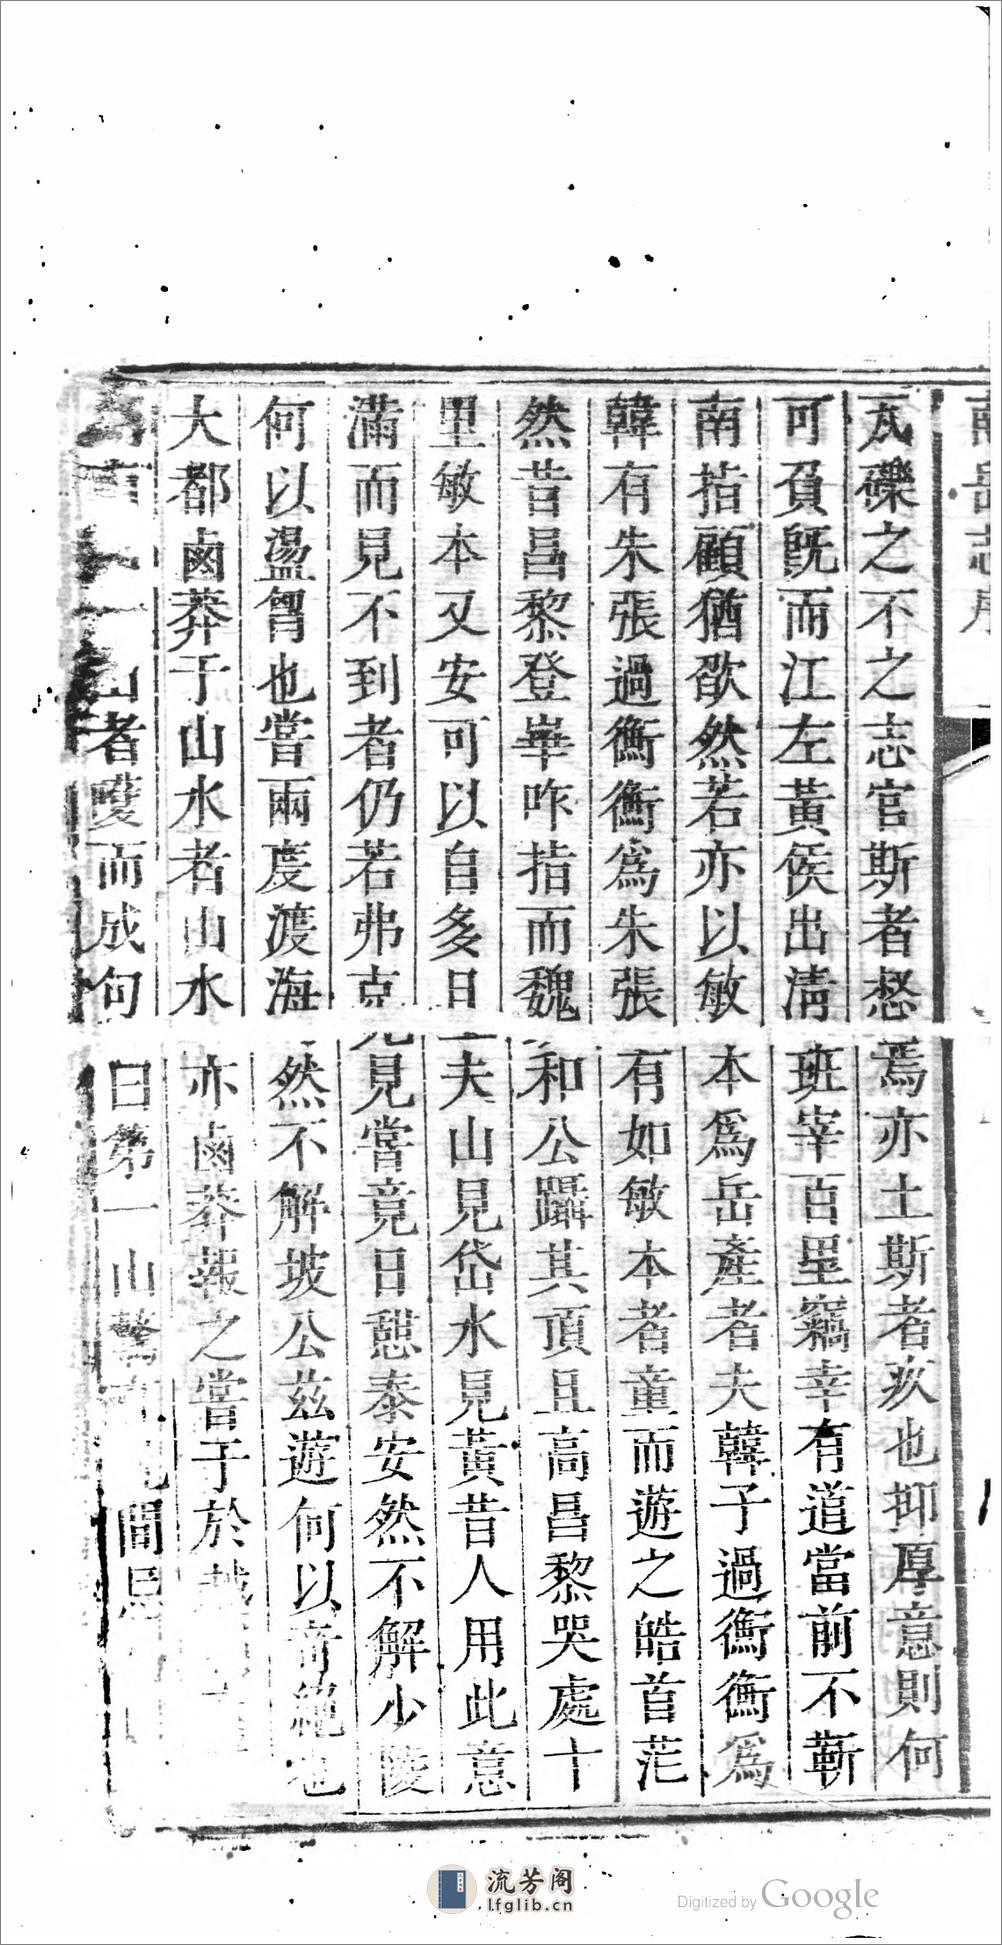 南岳志序
瓦礫之不之志官斯者愁焉亦土斯者疚也抑厚意則何
可負旣而江左黃侯出淸班宰百里竊幸有道當前不靳
南指顧猶欿然若亦以敏本爲岳產者夫韓子過衡衡爲
韓有朱張過衡衡爲朱張有如敏本者童而遊之皓首茫
然昔昌黎登崋咋指而魏和公躡其頂且高昌黎哭處十
里敏本又安可以自多日夫山見岱水見黃昔人用此意
滿而見不到者仍若弗克見見嘗竟日憩泰安然不解少陵
何以盪胷也嘗兩度渡海然不解坡公兹遊何以奇絕也
大都鹵莽于山水者山水亦鹵莽報之嘗于於越
山者戞而成句曰第一山
流芳阁
lfglib.cn
Digitized by Google